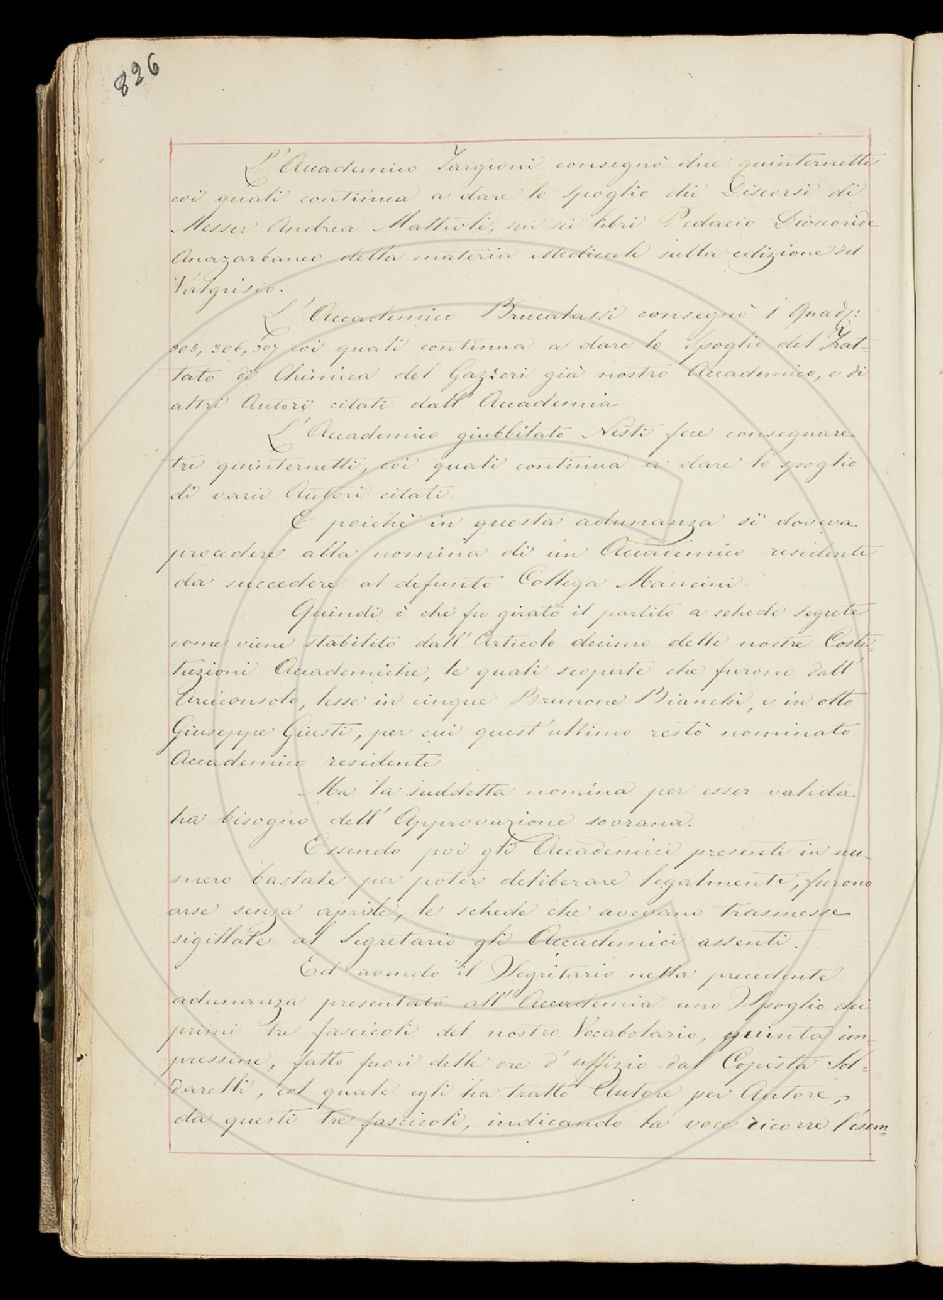 826
L'Accademico Targioni consegnò due quinternetti
coi quali continua a dare lo spoglio dei Discorsi di
Messer Andrea Mattioli, sui sei libri Pedacio Dioscoride
Anazarbaneo della materia Medicale sulla edizione del
Valgrisio.
L'Accademico Brucalassi consegnò i Quad:
305, 306, 307 coi quali continua a dare lo Spoglio del Trat-
tato di Chimica del Gazzeri già nostro Accademico, e di
altri Autori citati dall'Accademia
L'Accademico giubblitato Nesti fece consegnare
tre quinternetti, coi quali continua a dare lo spoglio
di varii Autori citati.
E poichè in questa adunanza si doveva
procedere alla nomina di un Accademico residente
da succedere al defunto Collega Mancini
Quindi è che fu girato il partito a schede segrete
come viene stabilito dall'Articolo decimo delle nostre Costi-
tuzioni Accademiche, le quali scoperte che furono dall'
Arciconsolo, lesse in cinque Brunone Bianchi, e in otto
Giuseppe Giusti, per cui quest'ultimo restò nominato
Accademico residente
Ma la suddetta nomina per esser valida
ha bisogno dell'Approvazione sovrana.
Essendo poi gli Accademici presenti in nu-
mero bastate per poter deliberare legalmente, furono
arse senza aprile, le schede che avevano trasmesse
sigillate al Segretario gli Accademici assenti.
Ed avendo il Segritario nella precedente
adunanza presentato all'Accademia uno Spoglio dei
primi tre fascicoli del nostro Vocabolario, quinta im-
pressine, fatto fuori delle ore d'uffizio dal Copista Sol-
daretti, col quale egli ha tratto Autore per Autore,
da questi tre fascicoli, indicando la voce dicorre l'esem-